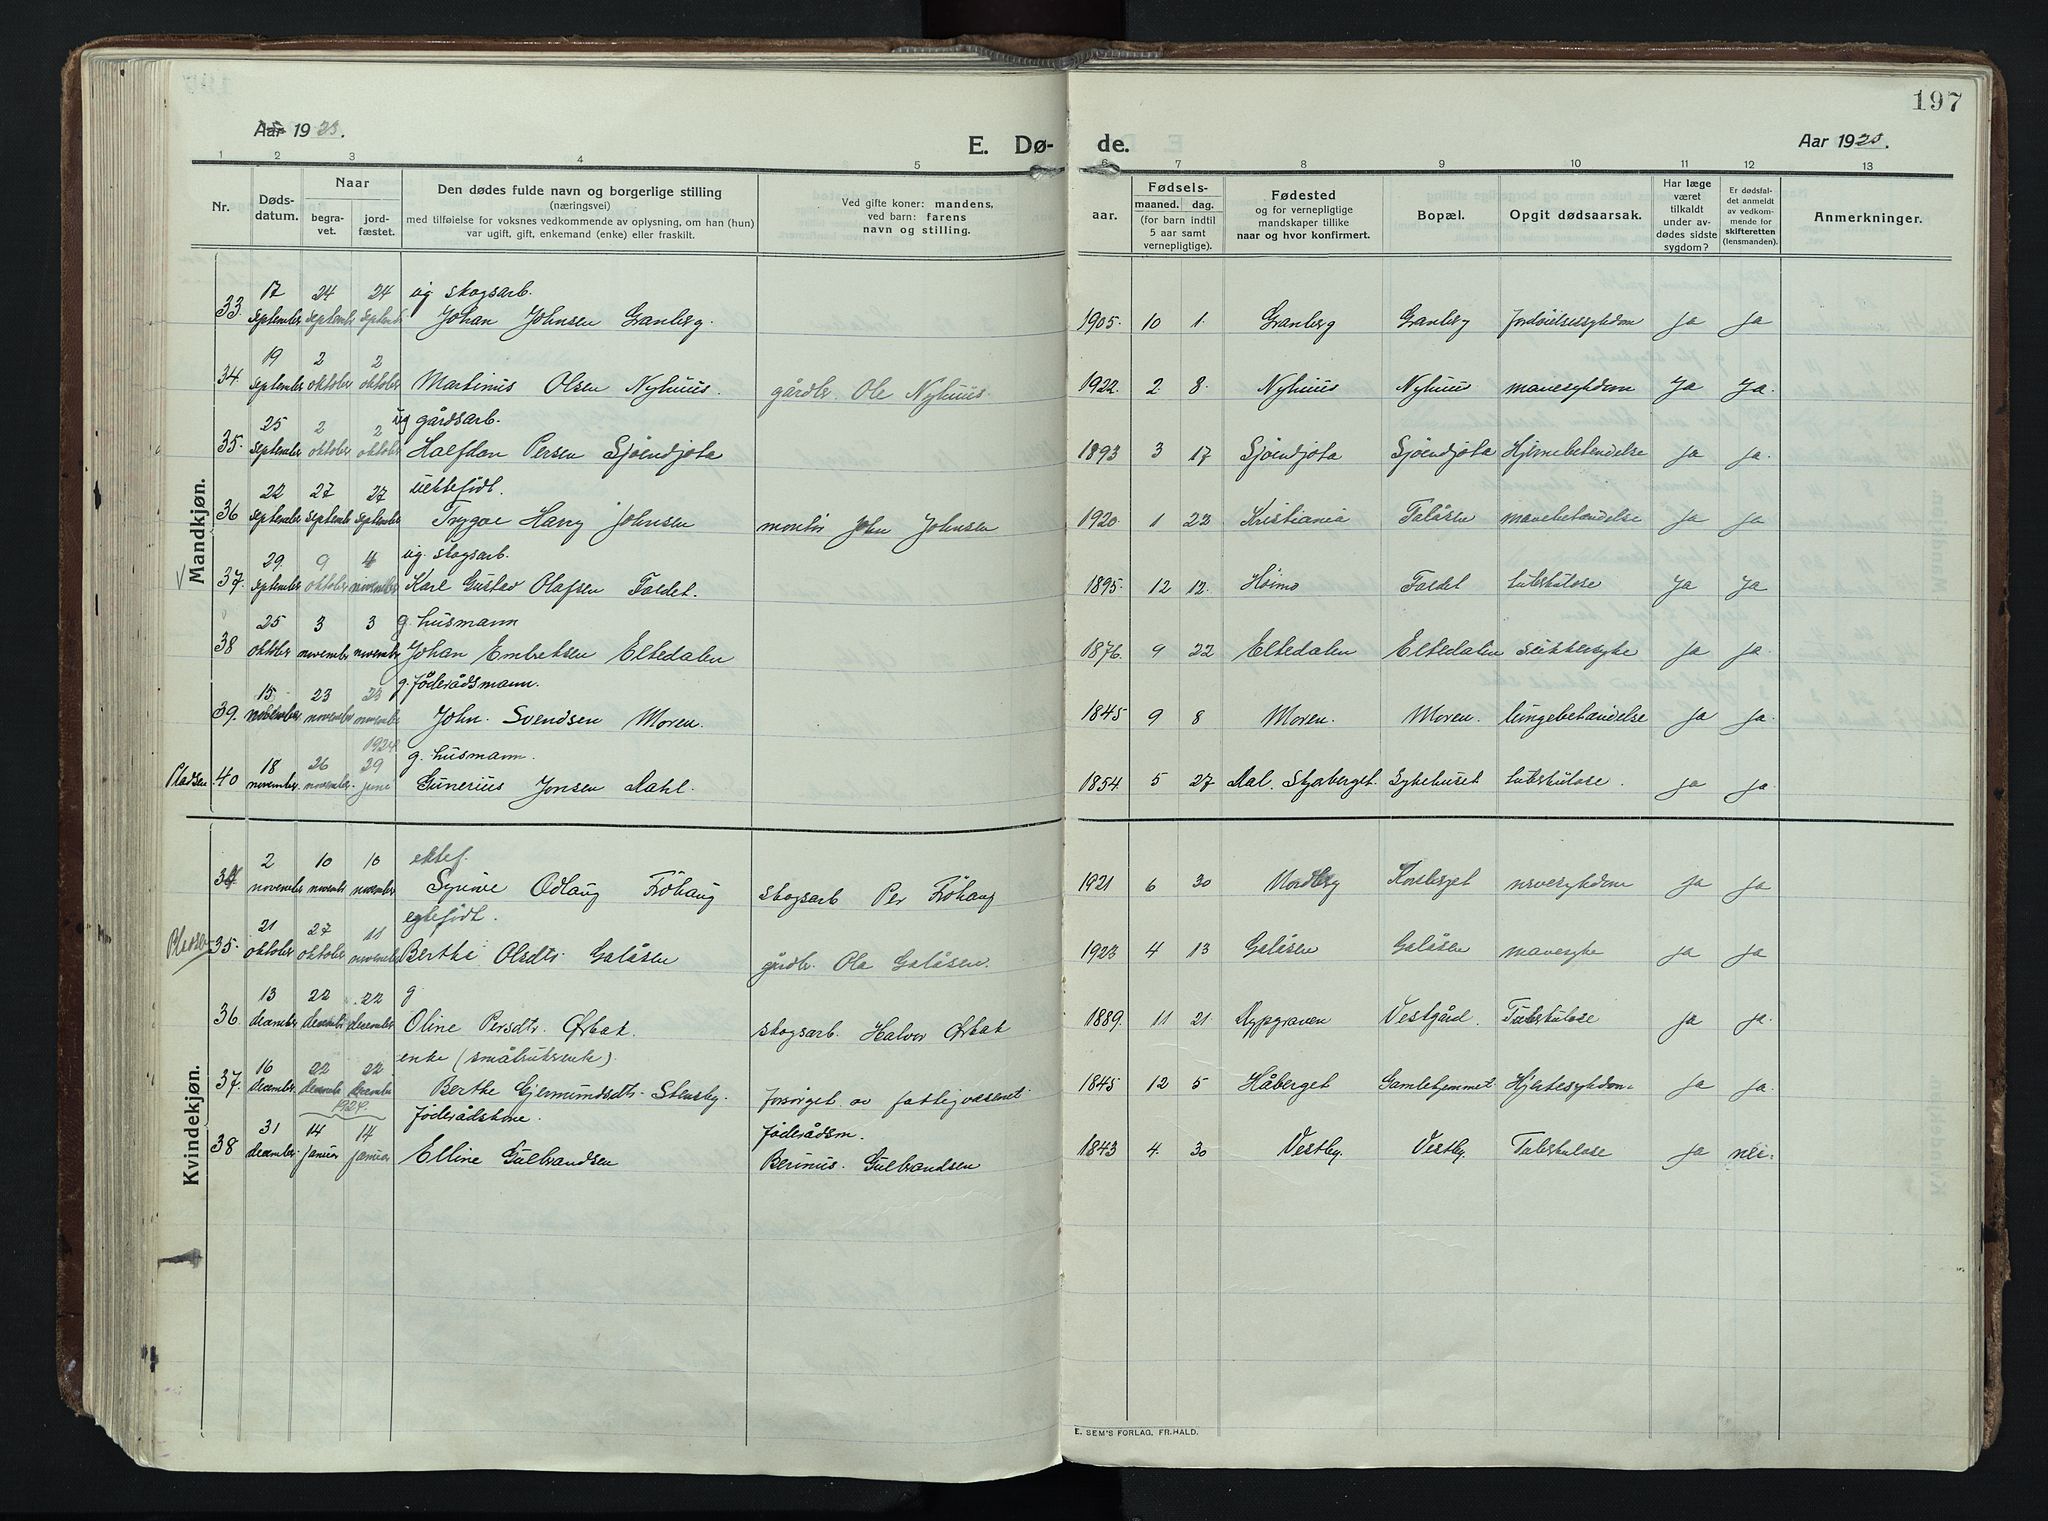 197
Aar 1923.
E. Dø-
de.
Aar 1923.
1 2 3 4 5 6 7 8 9 10 11 12 13
Nr.
Dødsdatum.
Naar
begravet.
jordfæstet.
Den dødes fulde navn og borgerlige stilling
(næringsvei)
med tilføielse for voksnes vedkommende av oplysning, om han (hun)
var ugift, gift, enkemand (enke) eller fraskilt.
Ved gifte koner: mandens,
ved barn: farens
navn og stilling.
aar.
Fødsels-
maaned. dag.
(for barn indtil
5 aar samt
vernepligtige).
Fødested
og for vernepligtige
mandskaper tillike
naar og hvor konfirmert.
Bopæl.
Opgit dødsaarsak.
Har læge
været
tilkaldt
under av-
dødes sidste
sygdom?
Er dødsfal-
det anmeldt
av vedkom-
mende for
skifteretten
(lensmanden).
Anmerkninger.
Mandkjøn.
17 24 24 ug. skogsarb.
33. september september september Johan Johnsen Granberg. 1905. 10 1. Granberg Granberg fordøielsessykdom Ja Ja
19 2 2
34. september oktober oktober Martinus Olsen Nyhuus. gårdbr. Ole Nyhuus. 1922. 2. 8. Nyhuus Nyhuus mavesykdom Ja Ja.
25 2 2 ug gårdsarb.
35. september oktober oktober Halfdan Persen Sjøendjota 1893 3 17 Sjøendjota Sjøendjota Hjernebetendelse Ja Ja.
22 27 27 uektefødt.
36 september september september Trygve Harry Johnsen montør John Johnsen 1920. 1 22 Kristiania Galåsen mavebetendelse Ja Ja
29. 9 4 ug. skogsarb.
37. september oktober november Karl Gustav Olafsen Faldet. 1895. 12 12. Heimo Faldet tuberkulose Ja Ja
25 3 3 g. husmann
38 oktober november november Johan Embretsen Eltedalen 1876. 9 22 Eltedalen Eltedalen sukkersyke Ja Ja.
15 23 23 g. føderådsmann.
39. november november november John. Svendsen Moren. 1845 9 8 Moren. Moren. lungebetendelse Ja Ja.
1924
18 26 29 g. husmann.
Pladsen 40 november. november. juni Gunerius Jonsen Aahl. 1854. 5 27 Aal. Skjærberget. Sykehuset tuberkulose. Ja Ja.
Kvindekjøn.
2 10 10 ektef.
34 november november november Synøve Odlaug Frøhaug skogsarb Per Frøhaug 1921 6 30 Nordberg Korsberget nervesykdom Ja Ja
21 27 11 egtefødt.
35. oktober oktober november Berthe Olsdtr. Galåsen gårdbr. Ola Galåsen. 1923 4 13 Galåsen Galåsen mavesyke Ja Ja
13 22 22 g
36. december december december Oline Persdtr. Ørbak. skogsarb. Halvor Ørbak 1889. 11 21. Rypgraven Vestgård. Tuberkulose Ja Ja.
16 22 22 enke (småbrukrenke).
37. december december december Berthe Gjermundsdtr. Stensby. forsørget av fattigvæsenet. 1845 12 5 Håberget Gamlehjemmet Hjertesykdom Ja Ja.
1924.
31 14 14 føderådskone. føderådsm.
38 december. januar januar Elline Gulbrandsen Berinus. Gulbrandsen 1843 4. 30 Vestby. Vestby. Tuberkulose Ja nei.
E. SEM'S FORLAG, FR.HALD.